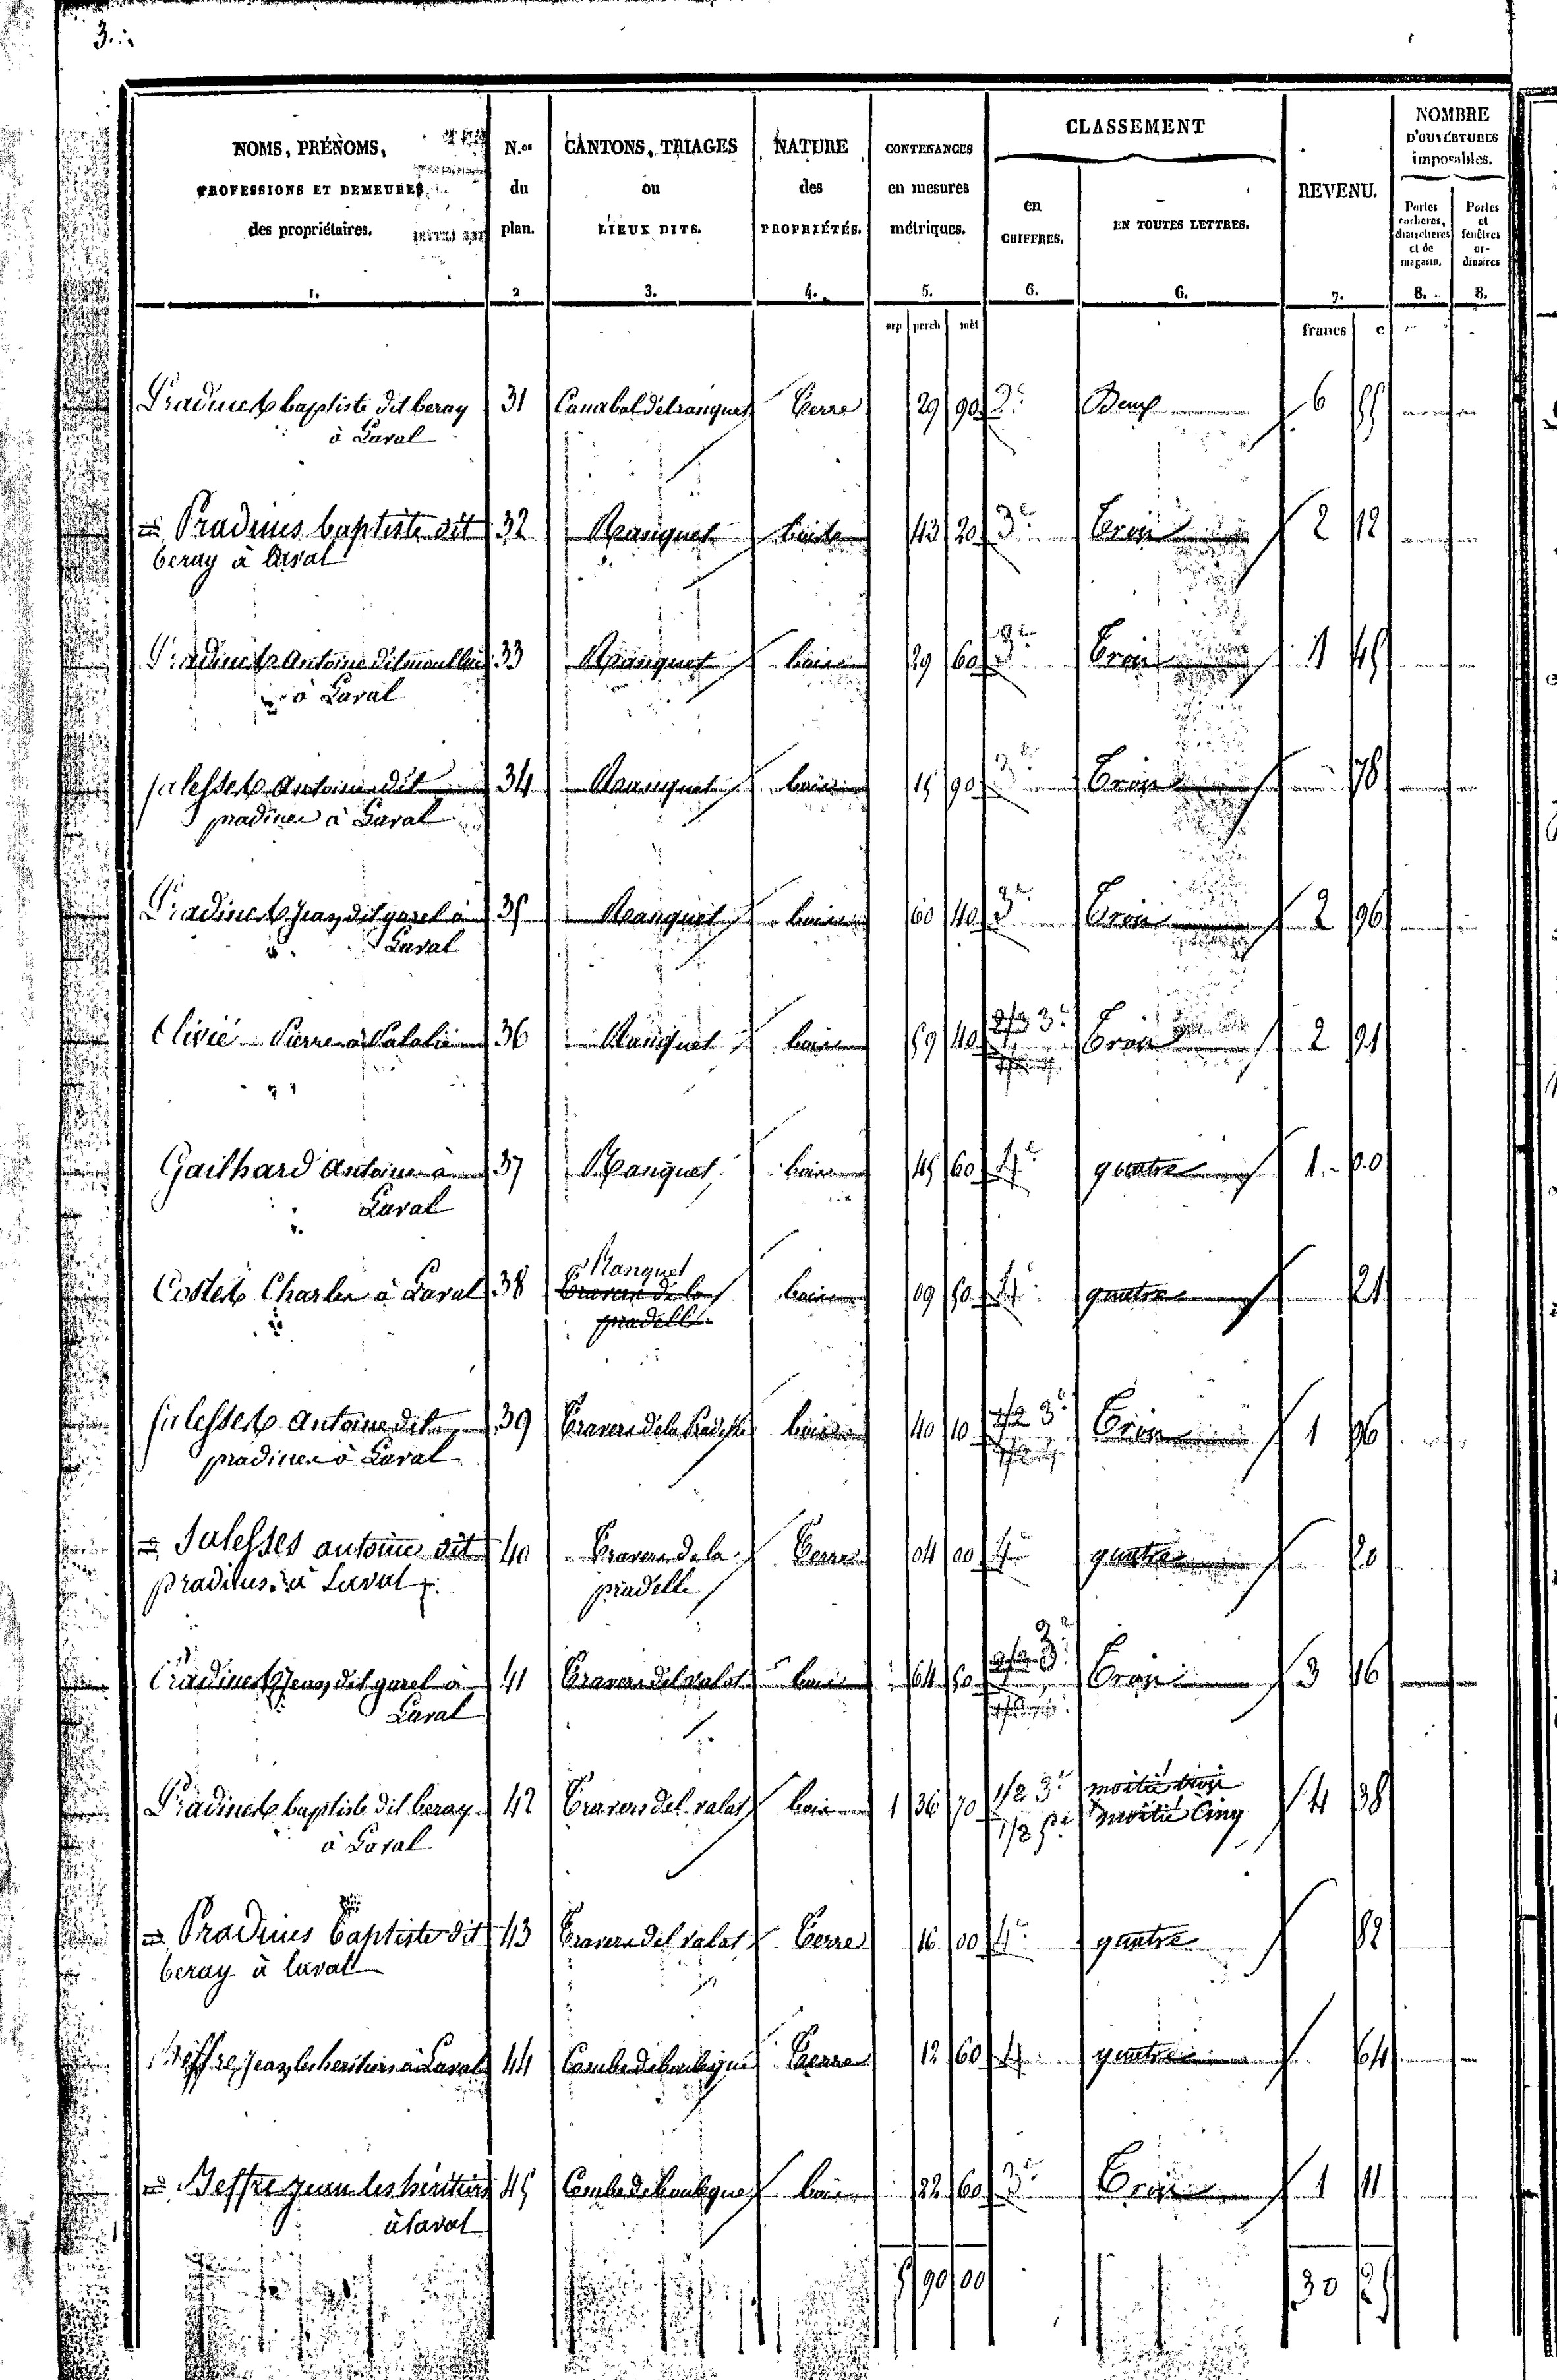 3.
NOMS, PRÉNOMS,
PROFESSIONS ET DEMEURES
des propriétaires.
1.
N.os
du
plan.
2
CANTONS, TRIAGES
ou
LIEUX DITS.
3.
NATURE
des
PROPRIÉTÉS.
4.
CONTENANCES
en mesures
métriques.
5.
CLASSEMENT
en
CHIFFRES.
6.
EN TOUTES LETTRES.
6.
REVENU.
7.
NOMBRE
D'OUVERTURES
imposables.
Portes
cocheres,
charretieres
et de
magasin.
8.
Portes
et
fenêtres
or-
dinaires
8.
arp perch mèt francs c
Pradines baptiste dit beray 31 Terre 29 90 2e Deux 6 55
à Laval
Pradines baptiste dit 32 Ranquet 43 20 3e Trois 2 12
beray à Laval
Pradines Antoine dit 33 Ranquet bois 29 60 3e Trois 1 45
à Laval
salesses Antoine dit 34 Ranquet bois 15 90 3e Trois 78
pradines à Laval
Pradines Jean dit garel à 35 Ranquet bois 60 40 3e Trois 2 96
Laval
Olivié Pierre à 36 Ranquet bois 59 40 3e Trois 2 91
Gailhard antoine à 37 Ranquet bois 45 60 4e quatre 1 00
Laval
Ranquet
Costes Charles à Laval 38 Travers de la bois 09 50 4e quatre 21
pradelle
salesses antoine dit 39 Travers de la Pradelle bois 40 10 3e Trois 1 96
pradines à Laval
Salesses antoine dit 40 Travers de la Terre 04 00 4e quatre 20
pradines à Laval pradelle
Pradines Jean dit garel à 41 Travers del valat bois 64 50 3e Trois 3 16
Laval
Pradines baptiste dit beray 42 Travers del valat bois 1 36 70 1/2 3e moitié trois 4 38
à Laval 1/2 5e moitié Cinq
Pradines baptiste dit 43 Travers del valat Terre 16 00 4e quatre 82
beray à laval
Jean les heritiers à Laval 44 Terre 12 60 4 quatre 64
Jeffre jean les héritiers 45 bois 22 60 3e Trois 1 11
à laval
5 90 00 30 25